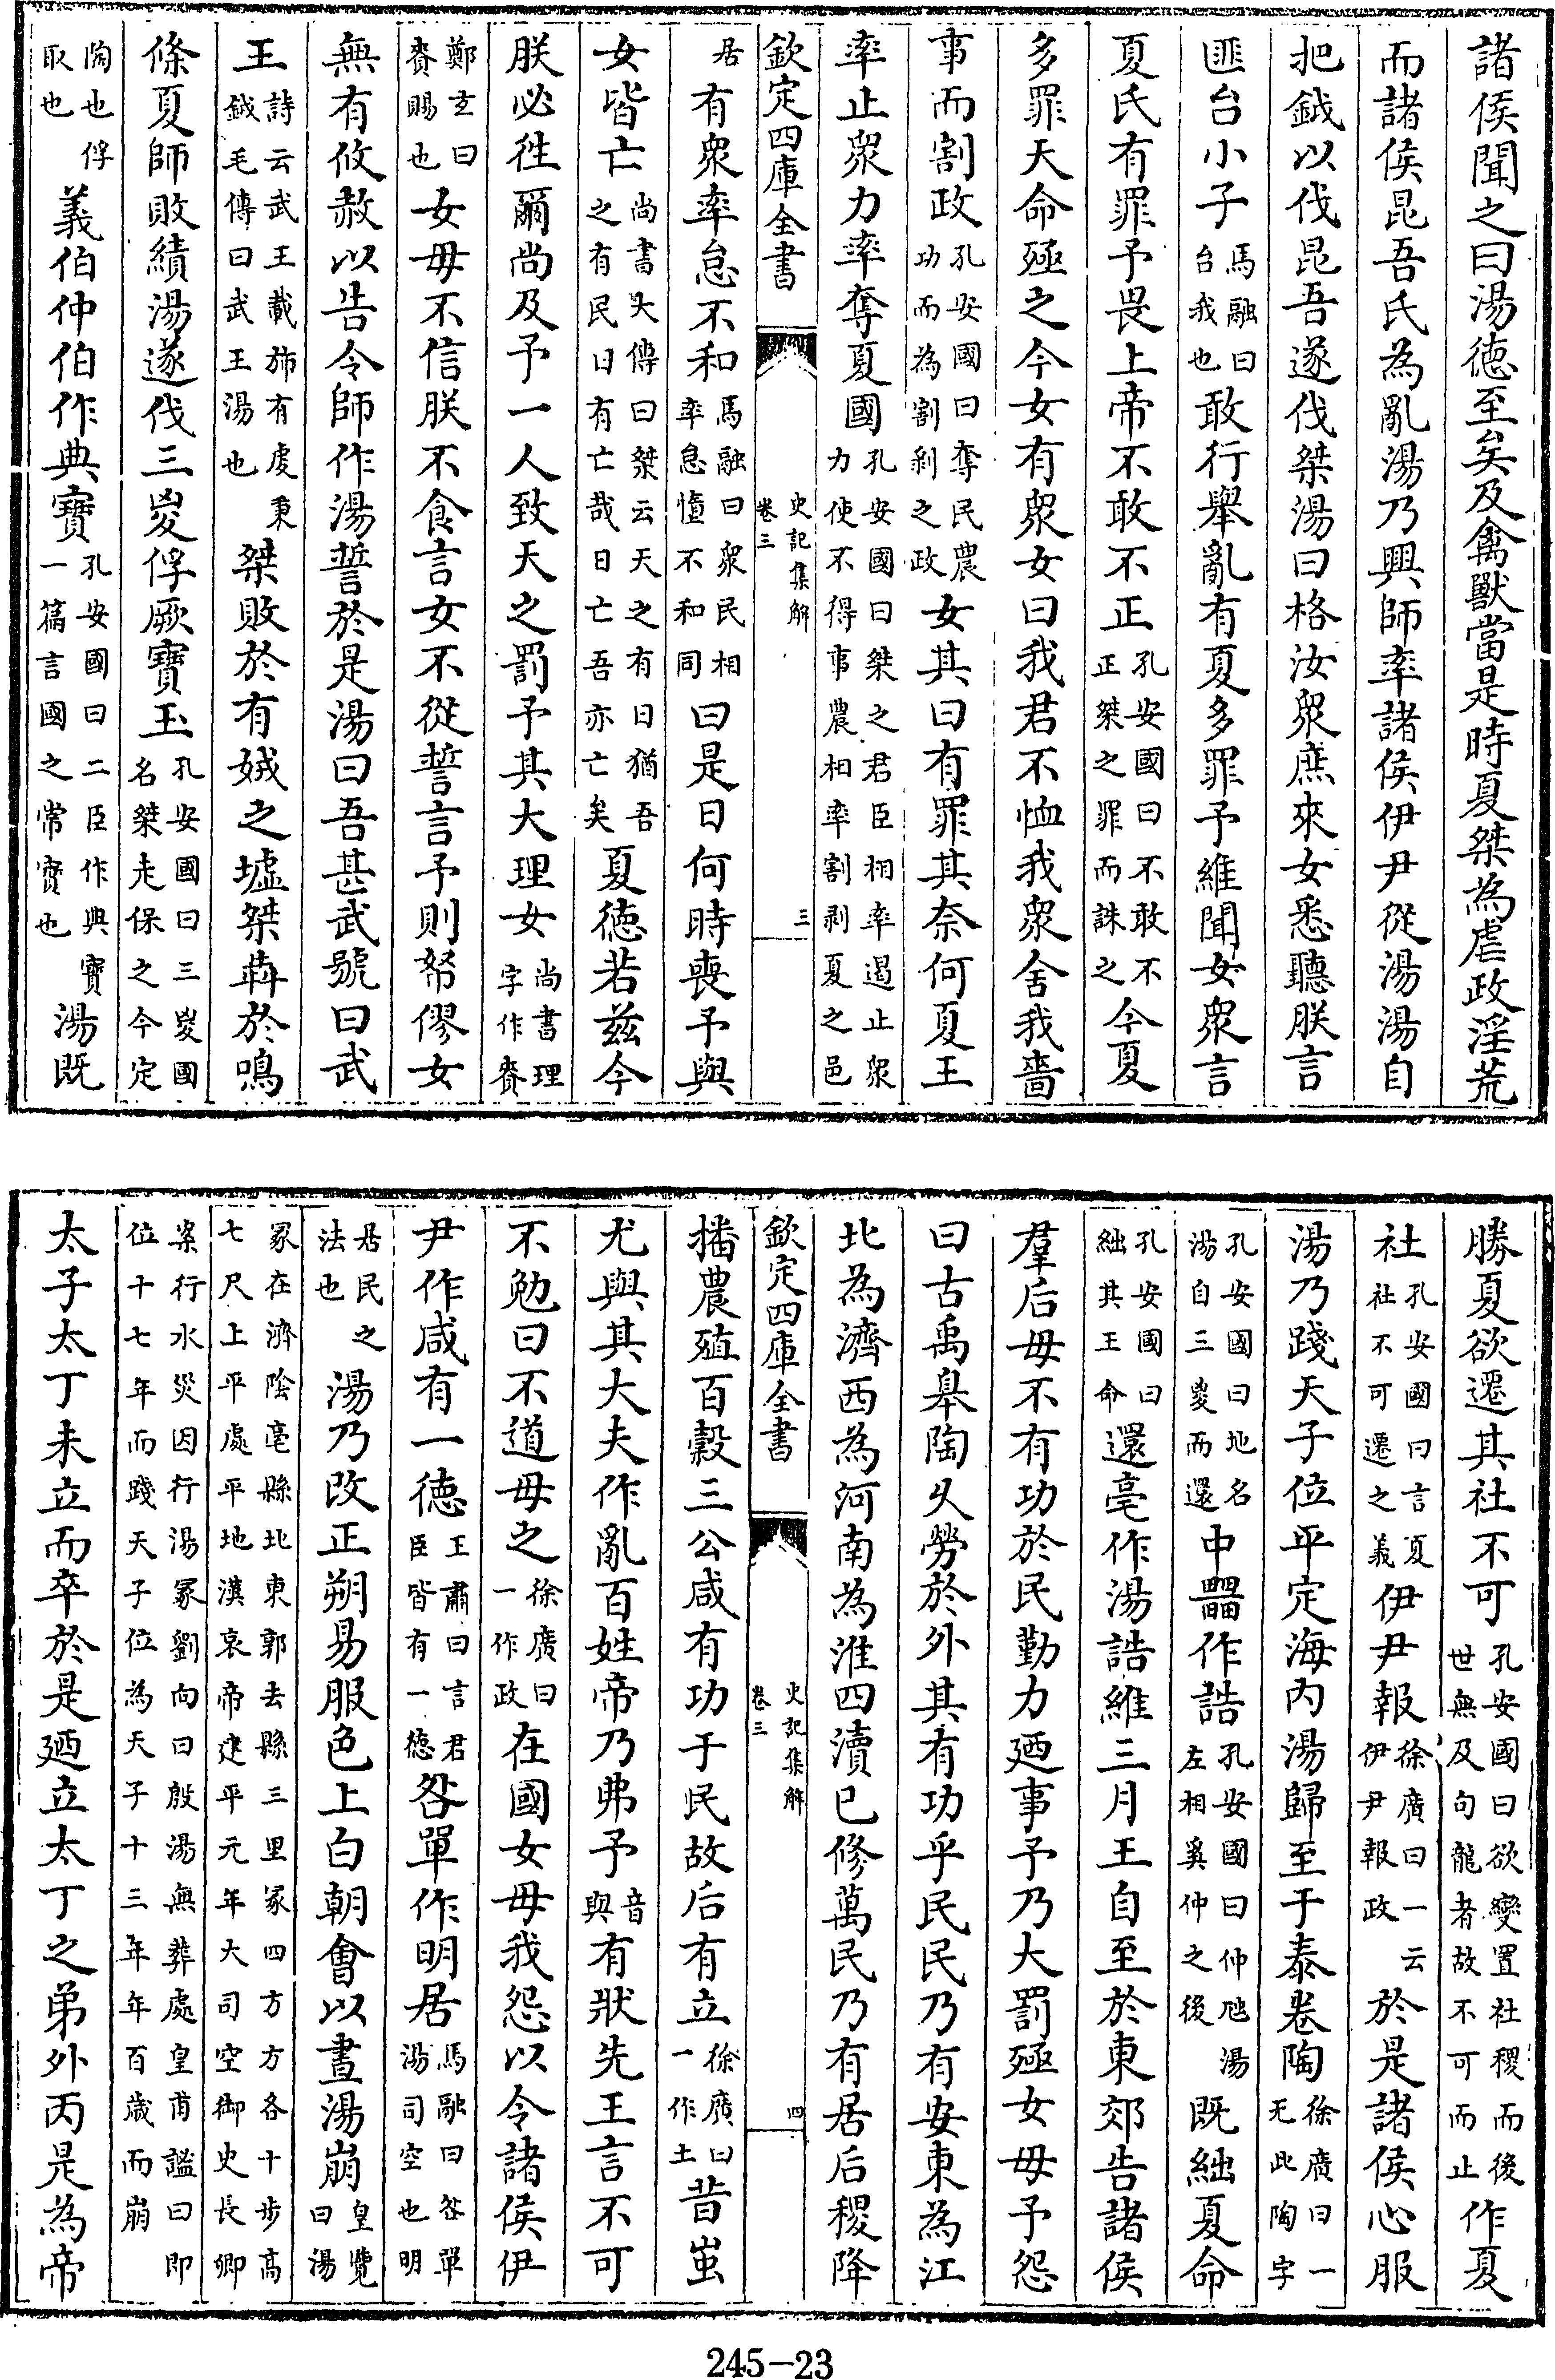 諸侯聞之曰湯徳至矣及禽獸當是時夏桀為虐政淫荒
而諸侯昆吾氏為亂湯乃興師率諸侯伊尹從湯湯自
把鉞以伐昆吾遂伐桀湯曰格汝衆庶來女悉聽朕言
匪台小子馬融曰台我也敢行舉亂有夏多罪予維聞女衆言
夏氏有罪予畏上帝不敢不正孔安國曰不敢不正桀之罪而誅之今夏
多罪天命殛之今女有衆女曰我君不恤我衆舍我嗇
事而割政孔安國曰奪民農功而為割剥之政女其曰有罪其奈何夏王
率止衆力率奪夏國孔安國曰桀之君臣相率遏止衆力使不得事農相率割剥夏之邑
欽定四庫全書 史記集解 卷三 三
居有衆率怠不和馬融曰衆民相率怠惰不和同曰是日何時喪予與
女皆亡尚書大傳曰桀云天之有日猶吾之有民日有亡哉日亡吾亦亡矣夏徳若兹今
朕必徃爾尚及予一人致天之罰予其大理女尚書理字作賚
鄭玄曰賚賜也女毋不信朕不食言女不從誓言予則帑僇女
無有攸赦以告令師作湯誓於是湯曰吾甚武號曰武
王詩云武王載斾有虔秉鉞毛傳曰武王湯也桀敗於有娀之墟桀犇於鳴
條夏師敗績湯遂伐三㚇俘厥寶玉孔安國曰三㚇國名桀走保之今定
陶也俘取也義伯仲伯作典寶孔安國曰二臣作典寶一篇言國之常寳也湯既
勝夏欲遷其社不可孔安國曰欲變置社稷而後世無及句龍者故不可而止作夏
社孔安國曰言夏社不可遷之義伊尹報徐廣曰一云伊尹報政於是諸侯心服
湯乃踐天子位平定海内湯歸至于泰卷陶徐廣曰一无此陶字
孔安國曰地名湯自三㚇而還中𤳹作誥孔安國曰仲虺湯左相奚仲之後既絀夏命
孔安國曰絀其王命還亳作湯誥維三月王自至於東郊告諸侯
羣后毋不有功於民勤力廼事予乃大罰殛女毋予怨
曰古禹臯陶乆勞於外其有功乎民民乃有安東為江
北為濟西為河南為淮四瀆已修萬民乃有居后稷降
欽定四庫全書 史記集解 卷三 四
播農殖百穀三公咸有功于民故后有立徐廣曰一作土昔蚩
尤與其大夫作亂百姓帝乃弗予音與有狀先王言不可
不勉曰不道毋之徐廣曰一作政在國女毋我怨以令諸侯伊
尹作咸有一徳王肅曰言君臣皆有一徳咎單作明居馬融曰咎單湯司空也明
居民之法也湯乃改正朔易服色上白朝會以晝湯崩皇覽曰湯
冢在濟陰亳縣北東郭去縣三里冢四方方各十步高七尺上平處平地漢哀帝建平元年大司空御史長卿
案行水災因行湯冢劉向曰殷湯無葬處皇甫謐曰即位十七年而踐天子位為天子十三年年百歲而崩
太子太丁未立而卒於是廼立太丁之弟外丙是為帝
245-23